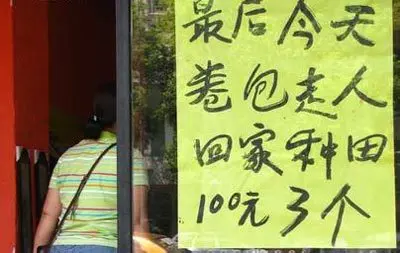 最后今天
卷包走人
回家种田
100元3个